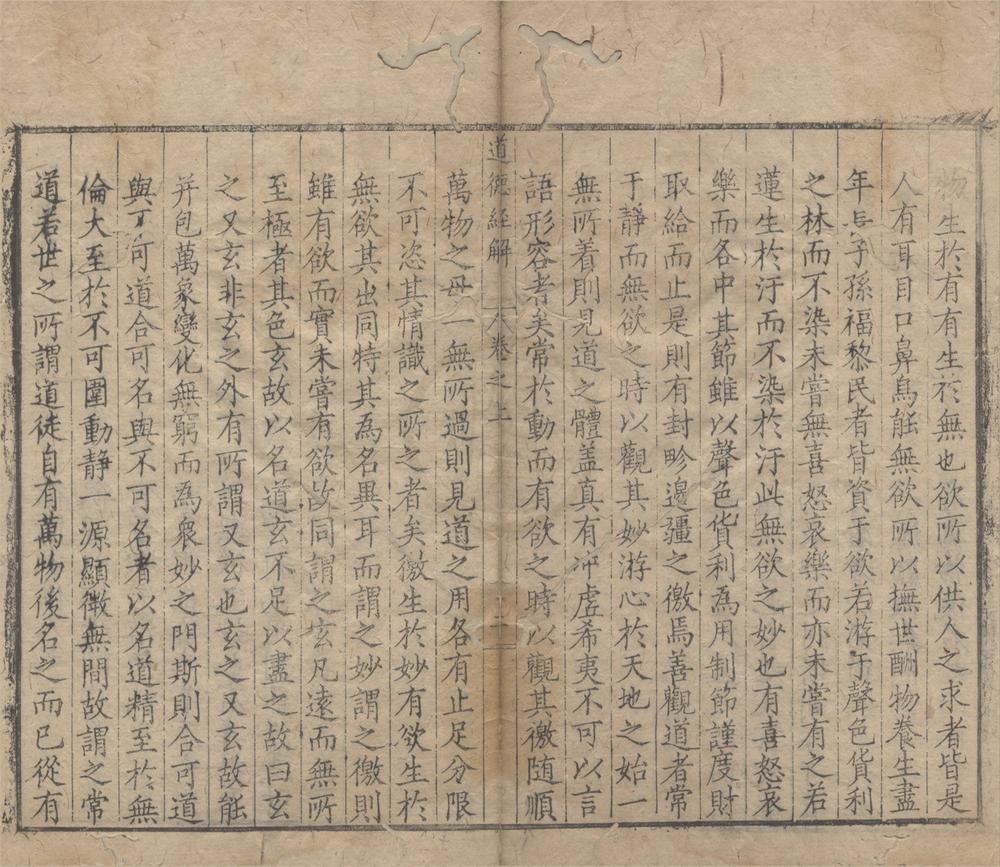 物生於有有生於無也欲所以供人之求者皆是
人有耳目口鼻烏能無欲所以撫世酬物養生盡
年与子孫福黎民者皆資于欲若游于聲色貨利
之林而不染未嘗無喜怒哀樂而亦未嘗有之若
蓮生於汙而不染於汙此無欲之妙也有喜怒哀
樂而各中其節雖以聲色貨利為用制節謹度財
取給而止是則有封畛邊疆之徼焉善觀道者常
于靜而無欲之時以觀其妙游心於天地之始一
無所着則見道之體盖真有冲虛希夷不可以言
語形容者矣常於動而有欲之時以觀其徼随順
道德經解 卷之上 二
萬物之母一無所過則見道之用各有止足分限
不可恣其情識之所之者矣徼生於妙有欲生於
無欲其出同特其為名異耳而謂之妙謂之徼則
雖有欲而實未嘗有欲故同謂之玄凡遠而無所
至極者其色玄故以名道玄不足以盡之故曰玄
之又玄非玄之外有所謂又玄也玄之又玄故能
并包萬象變化無窮而為衆妙之門斯則合可道
與不可道合可名與不可名者以名道精至於無
倫大至於不可圍動静一源顯微無間故謂之常
道若世之所謂道徒自有萬物後名之而已從有